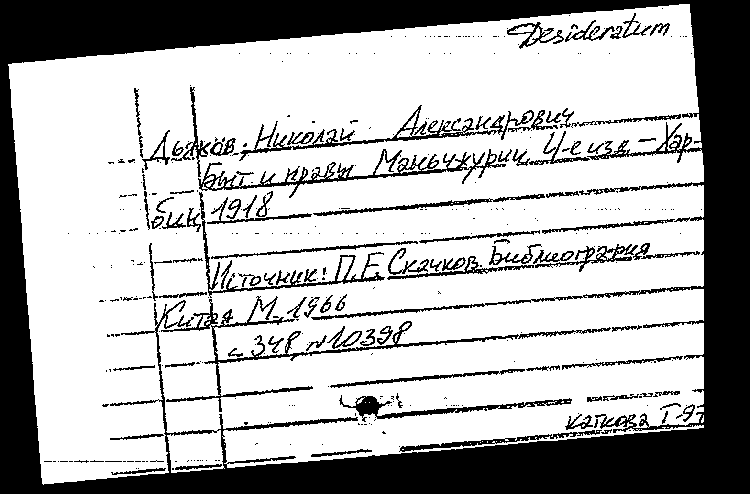 Desideratum
Дьяков, Николай Александрович
Быт и нравы Маньчжурии. 4-е изд. – Хар-
бин, 1918
Источник: П.Е. Скачков. Библиография
Китая М., 1966
с. 348, №10398
Каткова Т-97